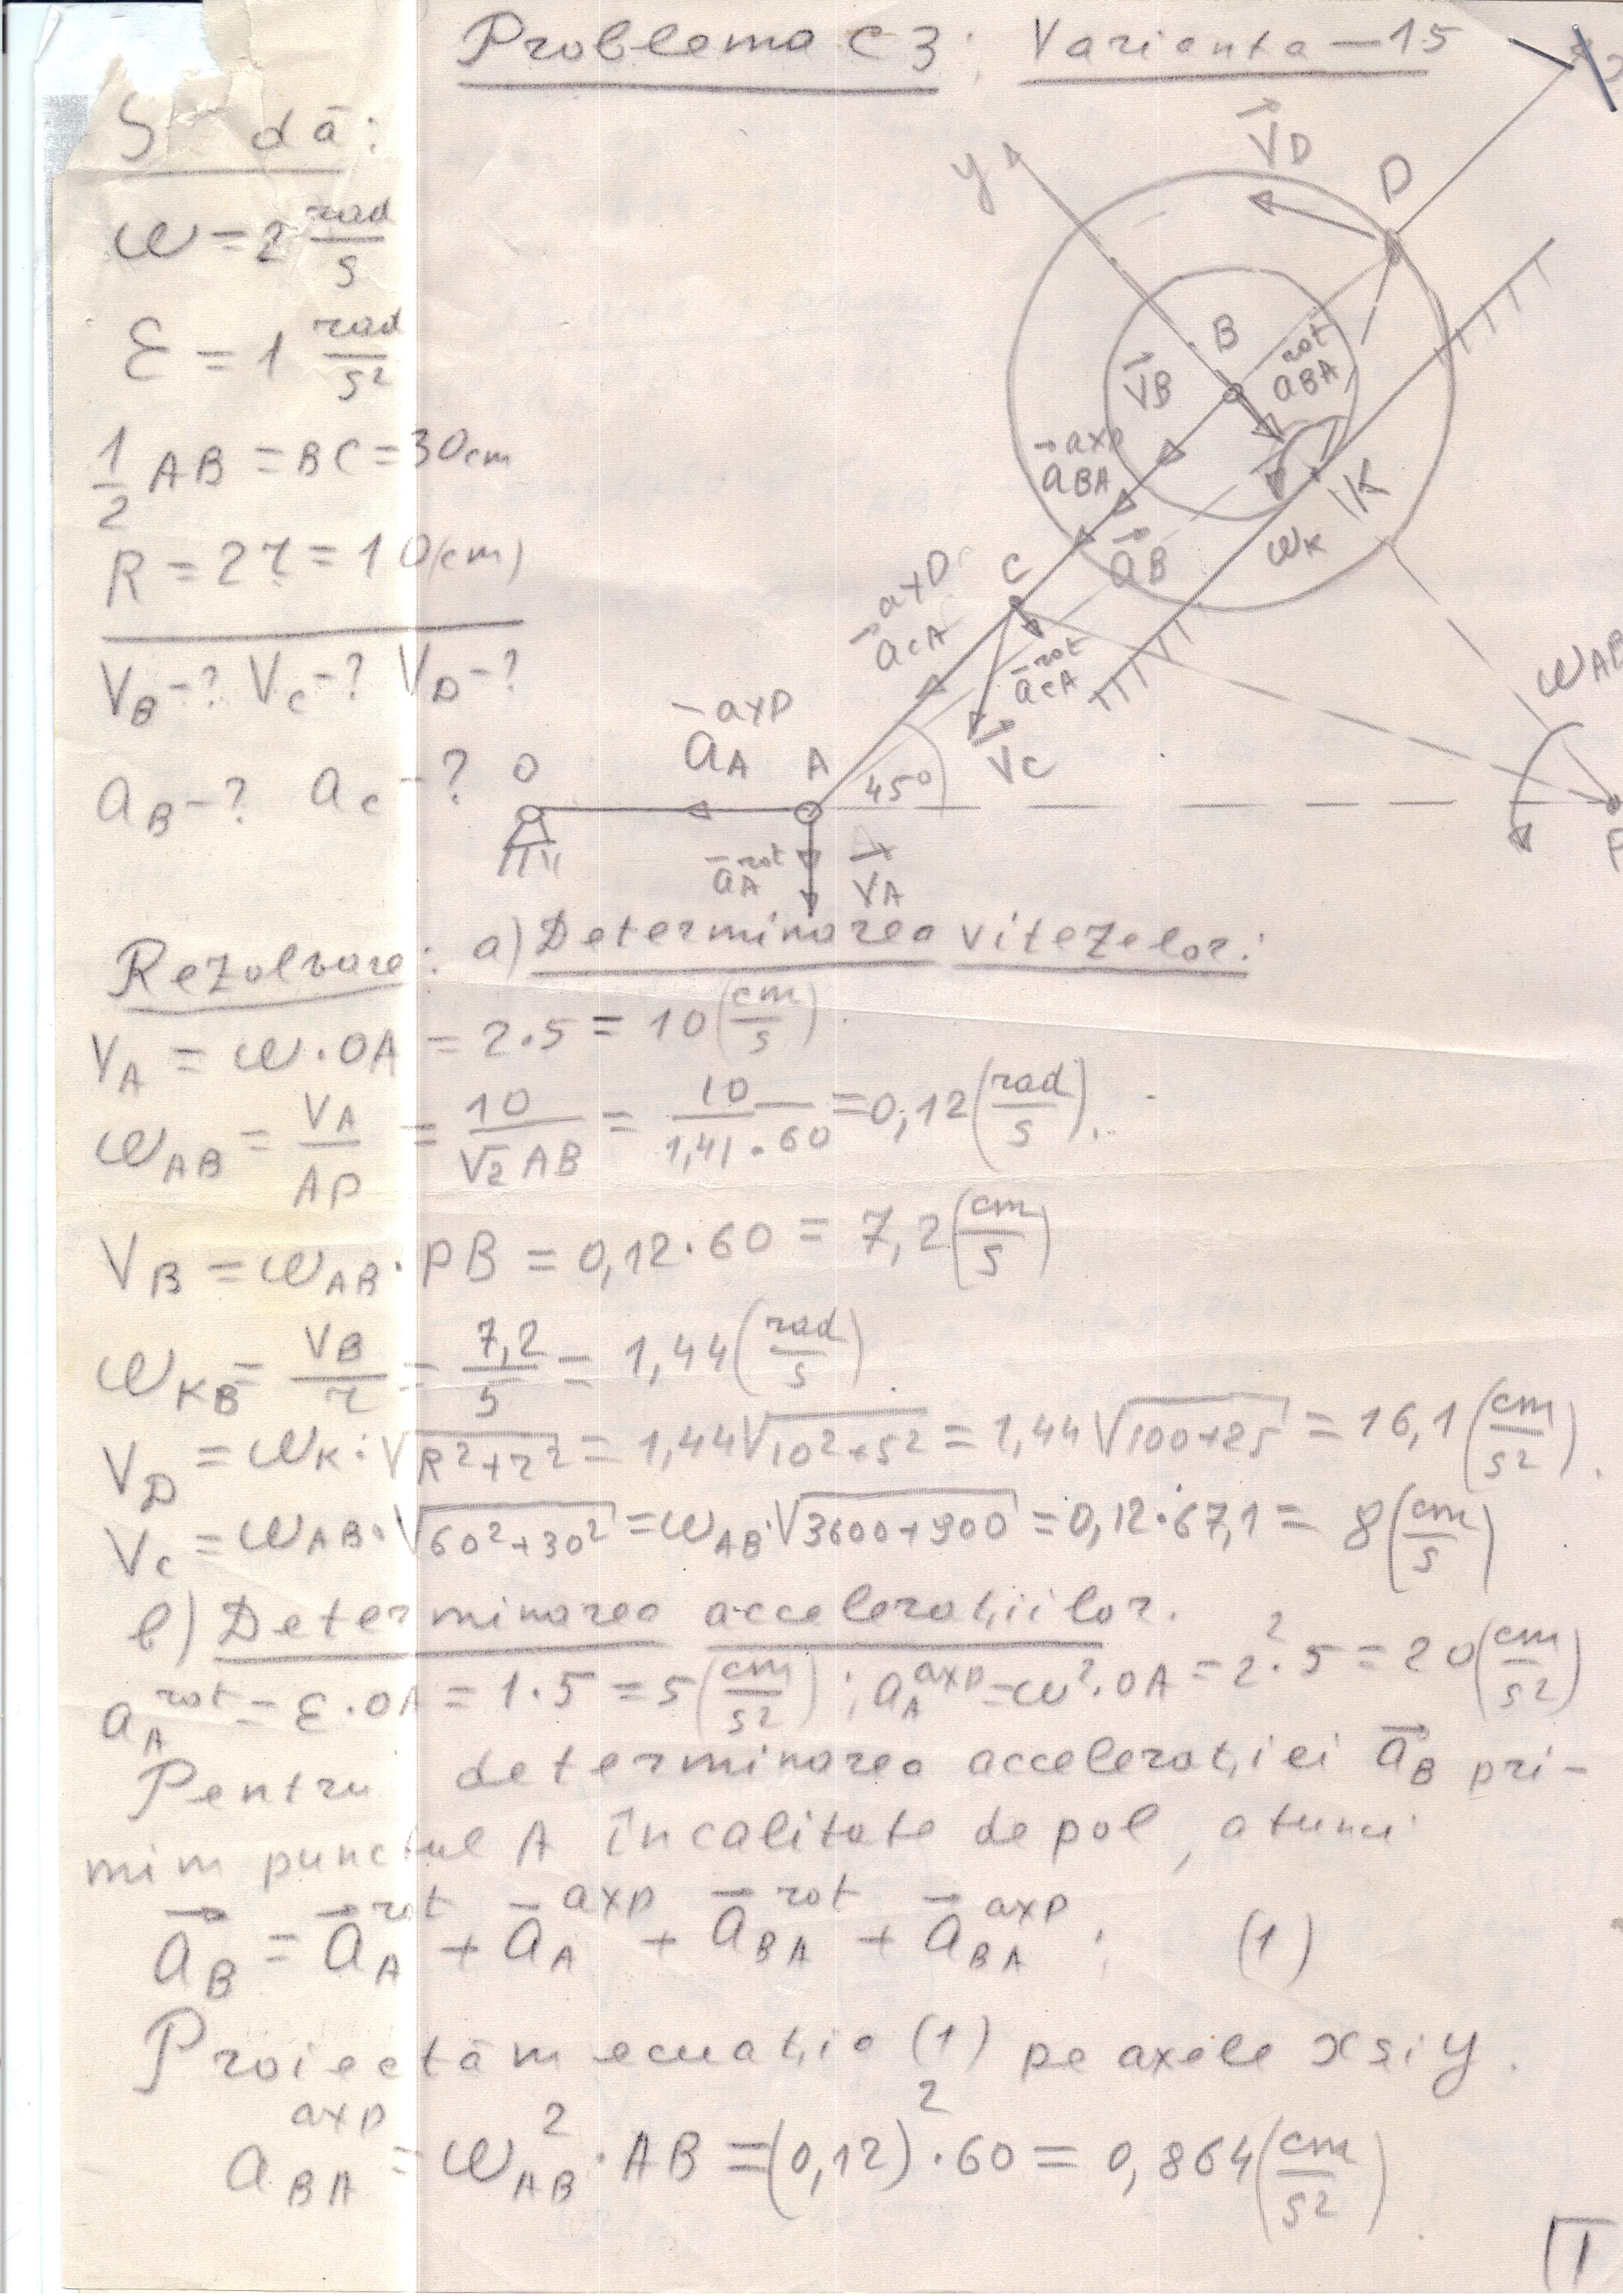 Problema C3; Varianta-15
S dă:
ω = 2 rad/s
ε = 1 rad/s²
1/2 AB = BC = 30cm
R = 2r = 10(cm)
V_B-? V_C-? V_D-?
a_B-? a_C-?
y
V_D
D
B
V_B
a_BA^rot
a_BA^axp
a_B
K
ω_K
C
a_CA^axp
a_CA^rot
V_C
ω_AB
a_A^axp
O
A
45°
a_A^rot
V_A
P
Rezolvare: a) Determinarea vitezelor:
V_A = ω·OA = 2·5 = 10 (cm/s).
ω_AB = V_A/AP = 10/(√2 AB) = 10/(1,41·60) = 0,12 (rad/s).
V_B = ω_AB·PB = 0,12·60 = 7,2 (cm/s)
ω_KB = V_B/r = 7,2/5 = 1,44 (rad/s).
V_D = ω_K·√(R²+r²) = 1,44√(10²+5²) = 1,44√(100+25) = 16,1 (cm/s²).
V_C = ω_AB·√(60²+30²) = ω_AB·√(3600+900) = 0,12·67,1 = 8 (cm/s)
b) Determinarea accelerațiilor.
a_A^rot = ε·OA = 1·5 = 5 (cm/s²); a_A^axp = ω²·OA = 2²·5 = 20 (cm/s²)
Pentru determinarea accelerației a_B pri-
mim punctul A în calitate de pol, atunci
a_B = a_A^rot + a_A^axp + a_BA^rot + a_BA^axp; (1)
Proiectăm ecuația (1) pe axele x și y.
a_BA^axp = ω_AB²·AB = (0,12)²·60 = 0,864 (cm/s²).
1